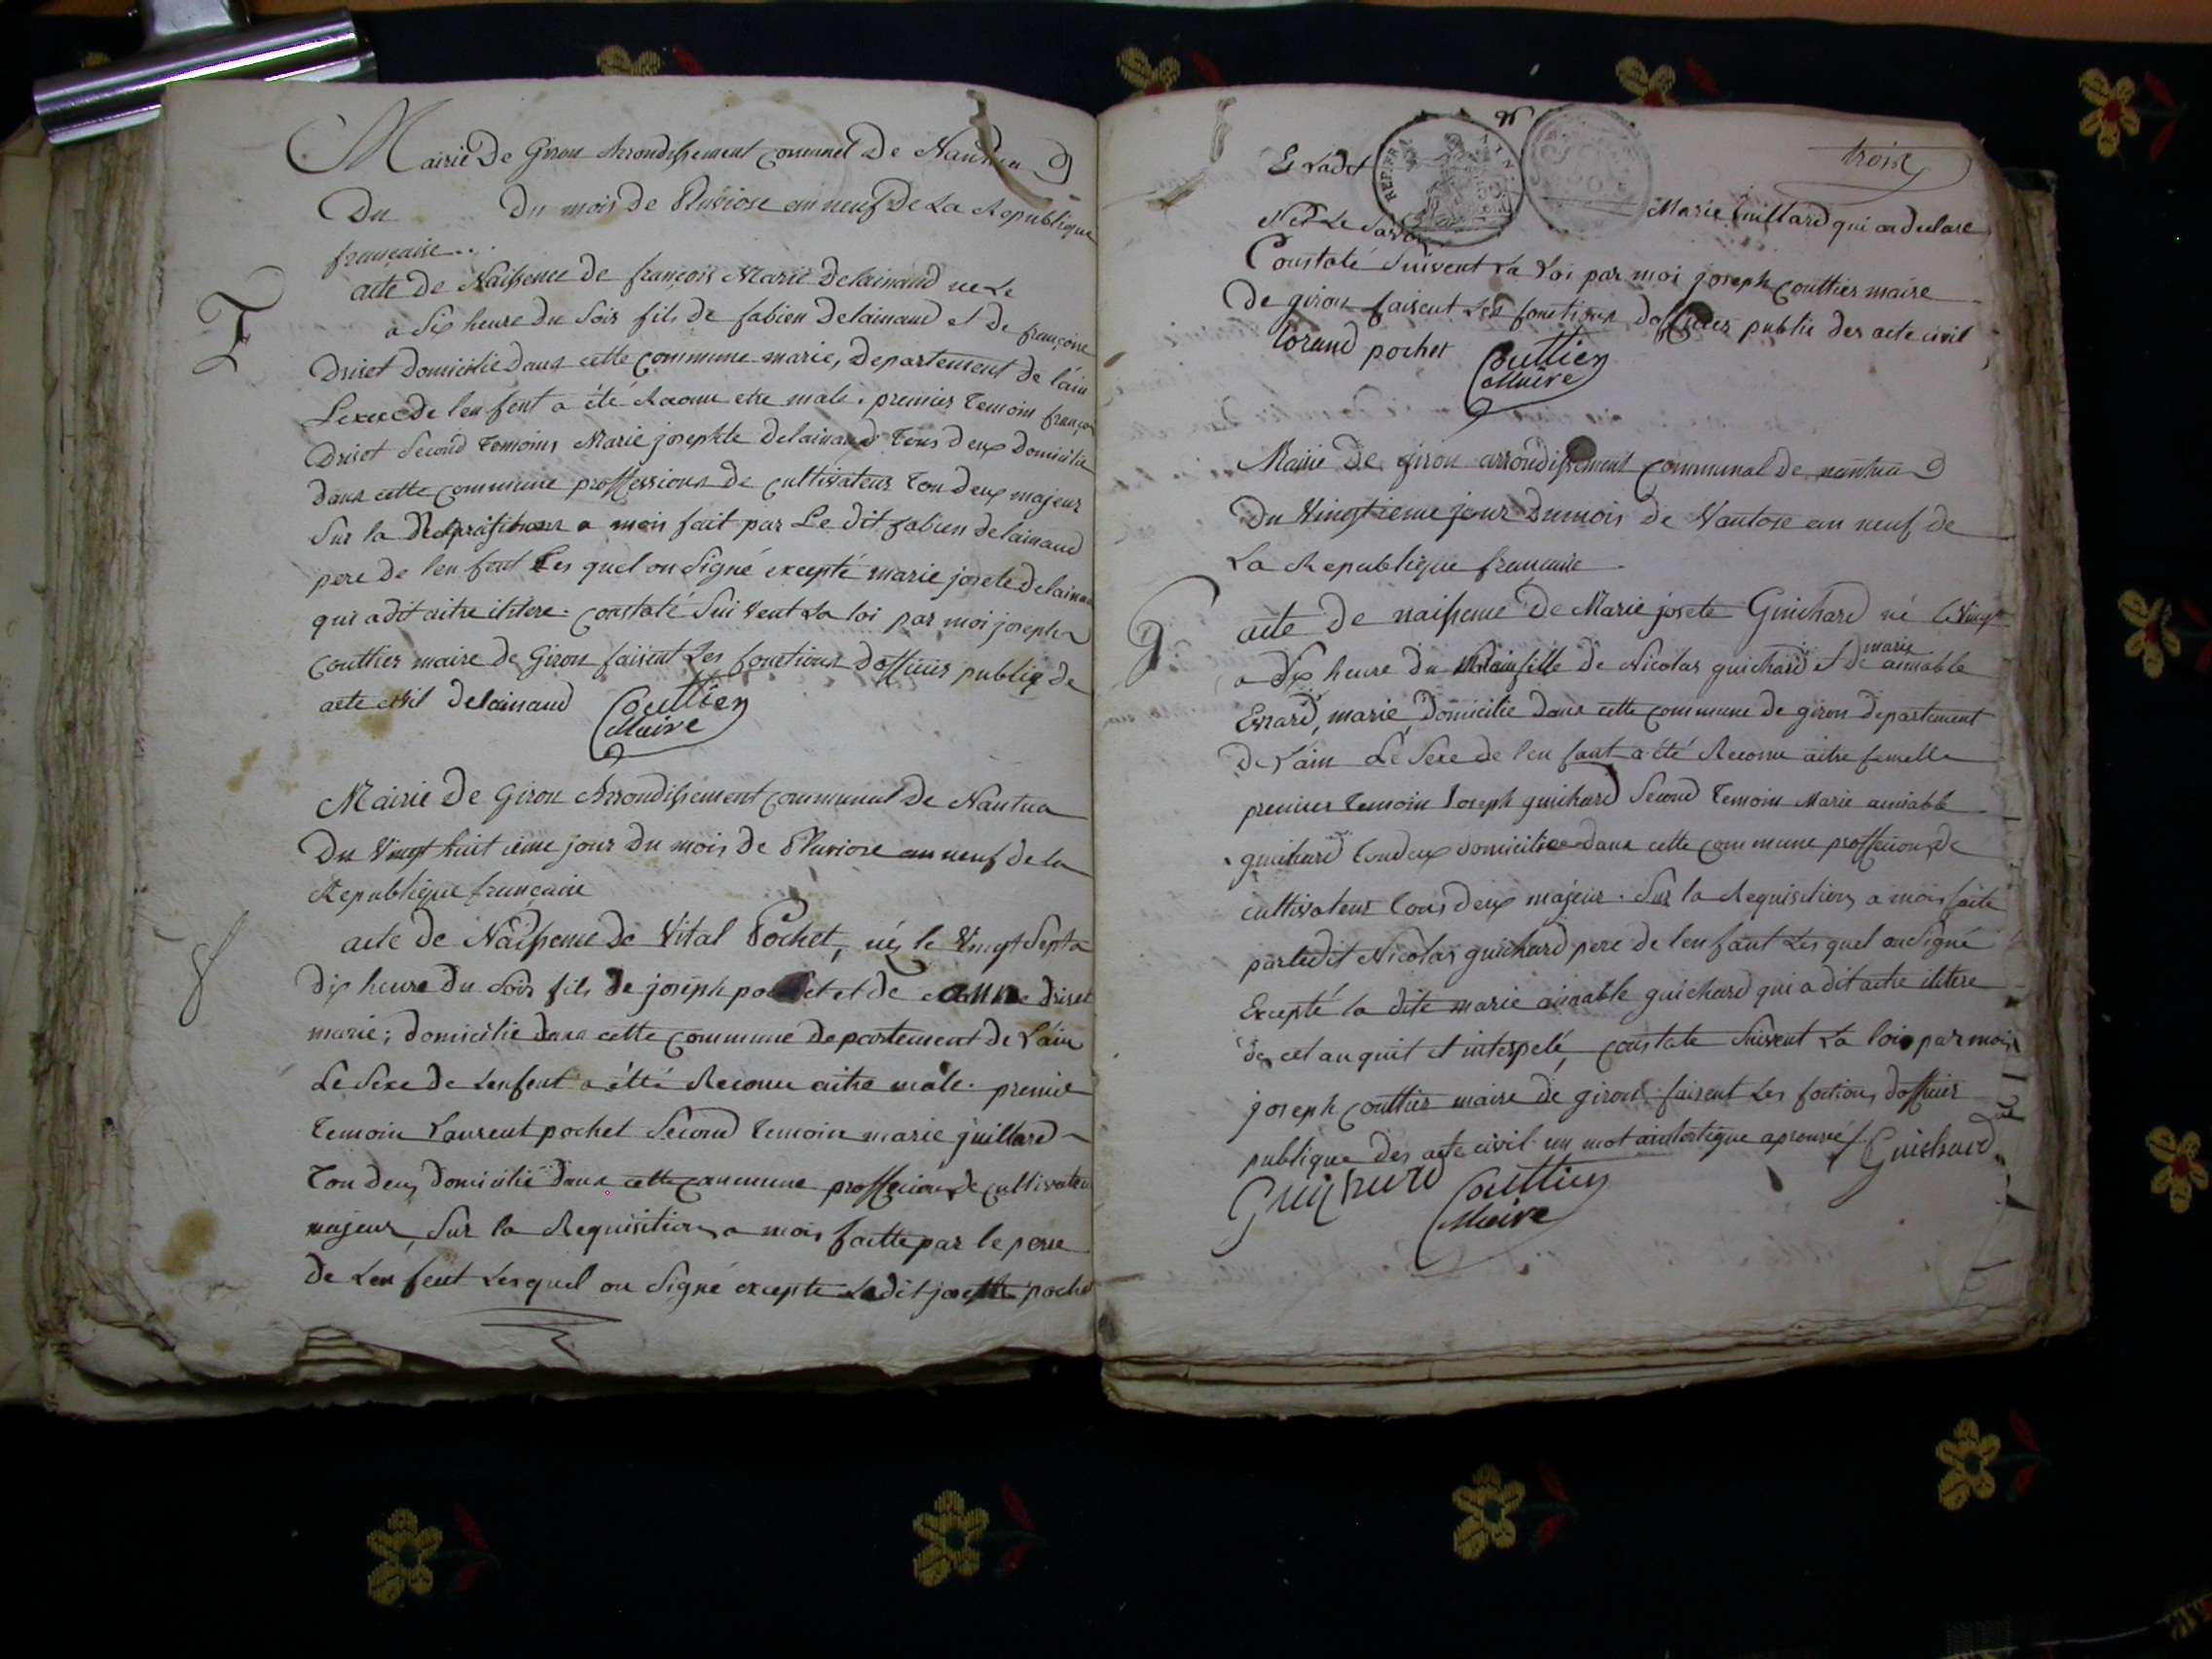 Mairie De Giron Arrondissement communel De Nantua
Du Du mois de Pluviose an neuf De La Republique
francaise..
7 acte de Naissence de françois Marie Delainaud ne Le
a Six heure du Soir fils de fabien Delainaud et de françoise
Driset Domicilie Dans cette Commune marie, Departement de l'ain
Le sexe De len fent a été Reconu etre male. premier Temoin françois
Driset Second Temoins Marie josephte Delainaud Tous deux Domicilie
dans cette commune proffessions de cultivateur Tou deux majeur
Sur la a moi fait par Le dit fabien delainaud
pere de len fent Les quel on Signé excepté marie josete Delainaud
qui a dit aitre ilitere. constaté Sui vent La loi par moi joseph
Couttier maire de Giron faisent Les fonctions dofficier publiq de
acte civil delainaud Couttier
Maire
Mairie De Giron Arrondissement communal De Nantua
Du Vingt huit ieme jour Du mois de Pluviose an neuf de la
Republique francaise
8 acte de Naissence De Vital Pochet, nés le Vingt Sept a
dix heure du Soir fils de joseph pochet et de anne Driset
marie; domicilie dans cette commune departement de Lain
Le Sexe de Lenfent a étté Reconu aitre male. premie
Temoin Laurent pochet Second Temoin marie juillard
Tou deux domicilie Dans cette commune proffecion de cultivateur
majeur, Sur la Requisition a moi faitte par le pere
de Len fent Lesquel on Signé excepte Ledit joseph pochet
Et Ladit REP. FRA. troix
Marie juillard qui on declare
Ned Le Savoir
Constaté Suivent La Loi par moi joseph couttier maire
De giron faisent Les fonctions dofficier public des acte civil
Lorand pochet Couttier
Maire
Mairie De giron arrondissement communal de nantua
Du Vingtieme jour Du mois de Vantose an neuf de
La Republique francaise
9 acte De naissence De Marie josete Guichard né le Vingt
a dix heure du fille de Nicolas guichard et de marie aimable
Evrard, marie, domicilie dans cette commune de giron departement
De Lain Le Sexe de l'en fant a été Reconu aitre femelle
premier Temoin Joseph guichard Second Temoin Marie aimable
guichard Tou deux domicilie dans cette commune proffecion de
cultivateur Tous deux majeur. Sur la Requisition a moi faite
par ledit Nicolas guichard pere de lenfant Les quel on Signé
Excepté la dite marie aimable guichard qui a dit aitre ilitere
de cet anquit et interpelé, constate Suivent La loi par moi
joseph couttier maire de giron faisent Les foctions dofficier
publique des acte civil un mot aprouvé Guichard
Guichard Couttier
Maire